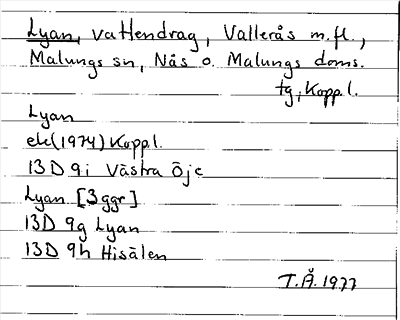 Lyan, vattendrag, Vallerås m.fl.,
Malungs sn, Nås o. Malungs doms.
tg, Kopp.l.
Lyan
ek(1974) Kopp.l.
13D 9i Västra Öje
Lyan [3 ggr]
13D 9g Lyan
13D 9h Hisälen
T.Å. 1977